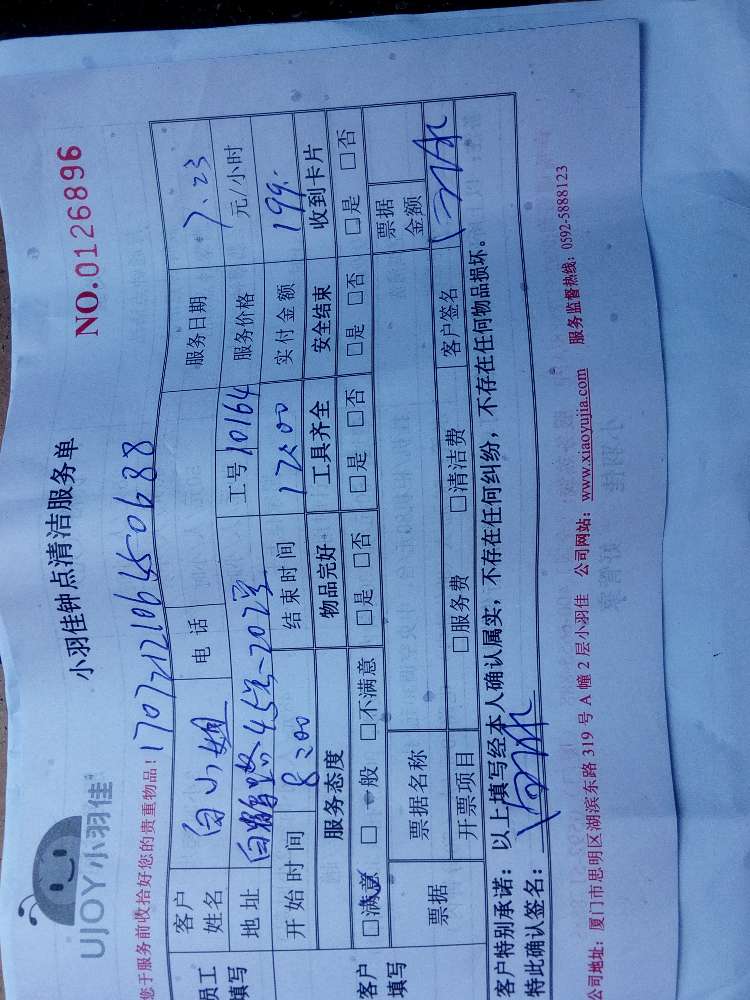 UJOY小羽佳
小羽佳钟点清洁服务单
NO.0126896
您于服务前收拾好您的贵重物品！170721210645 0688
员工填写
客户姓名 白小姐 电话 服务日期 7.23
地址 白鹤路45号~202室 工号 10164 服务价格 元/小时
开始时间 8:00 结束时间 12:00 实付金额 199.
服务态度 物品完好 工具齐全 安全结束 收到卡片
客户填写
□满意 □一般 □不满意 □是 □否 □是 □否 □是 □否 □是 □否
票据 票据名称 票据金额
开票项目 □服务费 □清洁费 客户签名
客户特别承诺：以上填写经本人确认属实，不存在任何纠纷，不存在任何物品损坏。
特此确认签名：
公司地址：厦门市思明区湖滨东路 319 号 A 幢 2 层小羽佳 公司网站：www.xiaoyujia.com 服务监督热线：0592-5888123